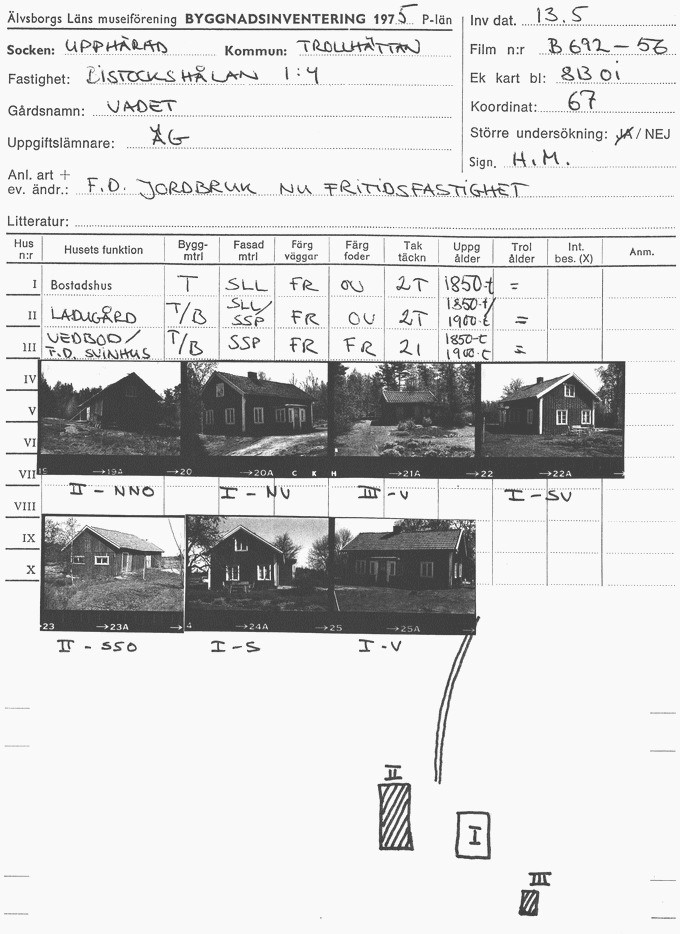 Älvsborgs Läns museiförening BYGGNADSINVENTERING 1975 P-län
Inv dat. 13.5
Socken: UPPHÄRAD Kommun: TROLLHÄTTAN
Film n:r B692-56
Fastighet: BISTOCKSHÅLAN 1:4
Ek kart bl: 8B 0i
Gårdsnamn: VADET
Koordinat: 67
Uppgiftslämnare: ÄG
Större undersökning: JA / NEJ
Sign. H.M.
Anl. art +
ev. ändr.: F.D. JORDBRUK NU FRITIDSFASTIGHET
Litteratur:
Hus n:r Husets funktion Bygg-mtrl Fasad mtrl Färg väggar Färg foder Tak täckn Uppg ålder Trol ålder Int. bes. (X) Anm.
I Bostadshus T SLL FR OV 2T 1850-t =
II LADUGÅRD T/B SLL/SSP FR OV 2T 1850-t/1900-t =
III VEDBOD/F.D. SVINHUS T/B SSP FR FR 21 1850-t 1900-t =
IV
V
VI
VII
→19A →20 →20A C K H →21A →22 →22A
II - NNO I - NV III - V I - SV
VIII
IX
X
→23 →23A →24A →25 →25A
II - SSO I - S I - V
II
I
III